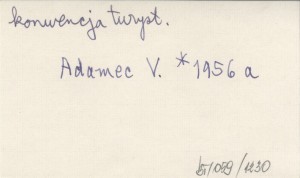 konwencja turyst.
Adamec V. *1956 a
/059/1230